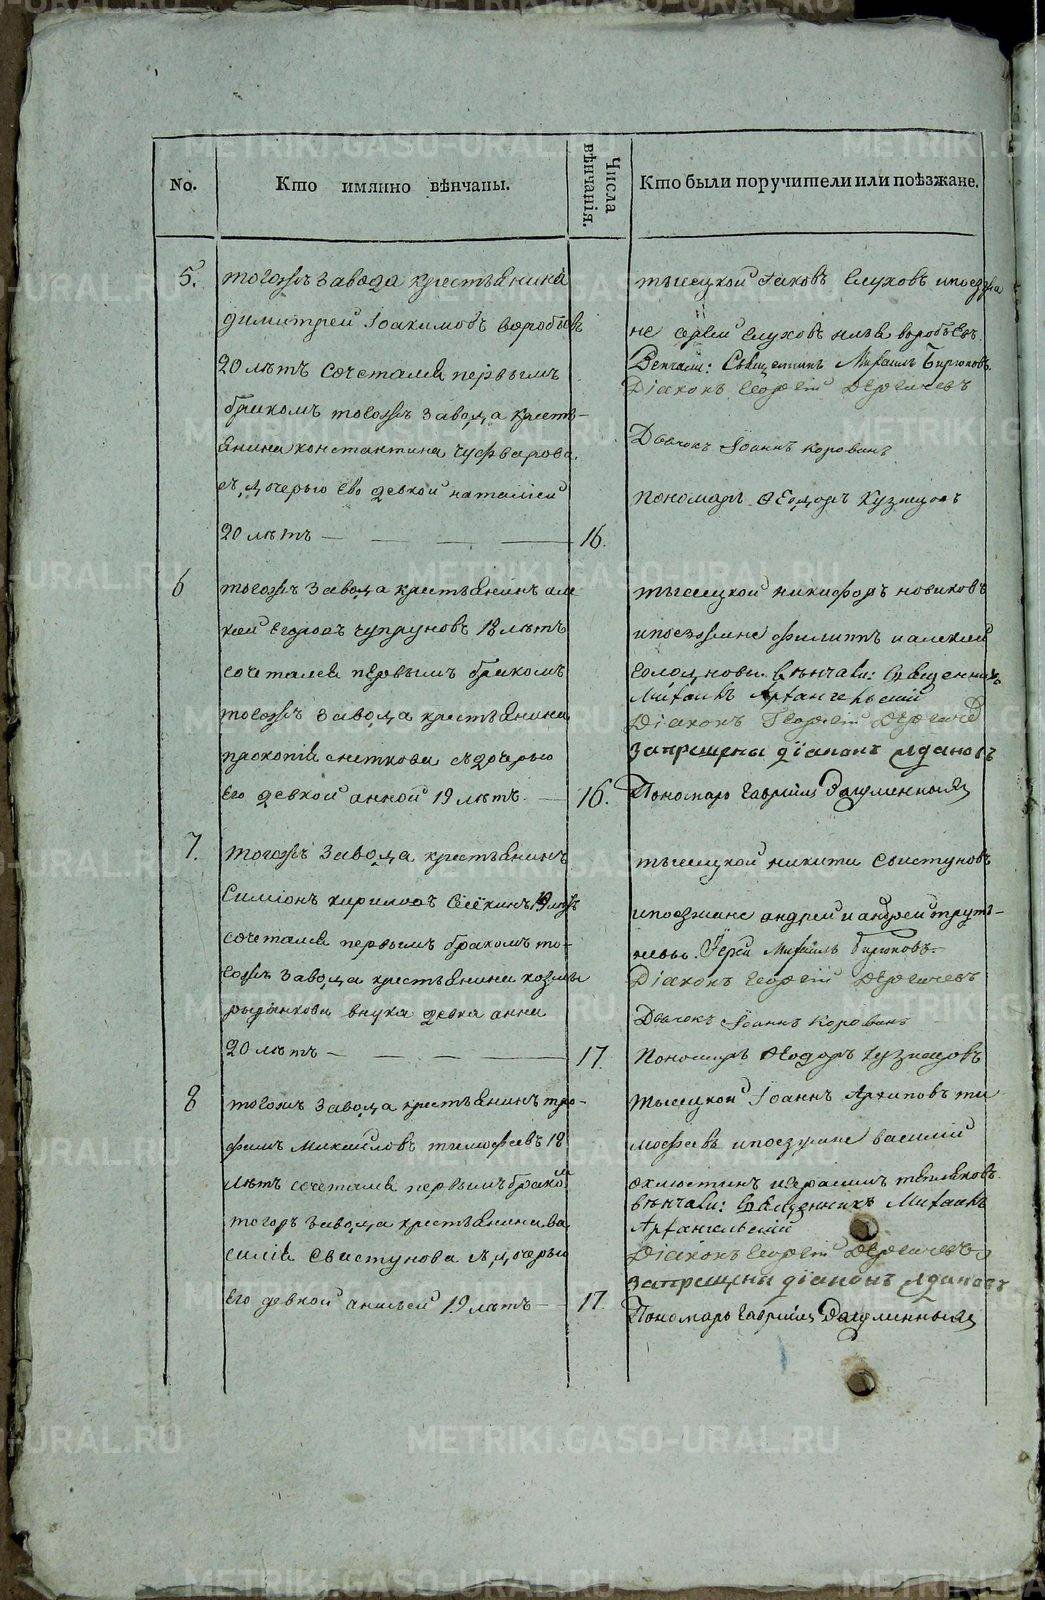 No.
Кто имянно вѣнчаны.
Числа вѣнчанія.
Кто были поручители или поѣзжане.
5.
тогожъ завода крестьянина
димитрей Іоакимовъ воробьевъ
20 лѣтъ сочетался первымъ
бракомъ тогожъ завода кресть-
янина константина
съ дочерью ево девкой наталіей
20 лѣтъ — — — — 16.
тысецкой Іаковъ Глуховъ
не сергеи глуховъ воробьевъ
Венчали: Священникъ Михаилъ Бирюковъ
Діаконъ Георгій Дергачевъ
Дьячокъ Іоаннъ Корованъ
пономарь Ѳеодоръ Кузнецовъ
6
тогожъ завода крестьянинъ але
ѯей егоровъ чупруновъ 18 лѣтъ
сочетался первымъ бракомъ
тогожъ завода крестьянина
прокопія сметкова съ дочерью
его девкой анной 19 лѣтъ. — 16.
тысецкой никифоръ новиковъ
ипоезжане филиппъ и алексей
солодновы. вѣнчали: священникъ
Михаилъ Архангельскій
Діаконъ Георгій Дергачев
запрещены діаконъ ждановъ
Пономарь Гавріилъ
7.
тогожъ завода крестьянинъ
Симіонъ кириловъ 19 лѣтъ
сочетался первымъ бракомъ то-
гожъ завода крестьянина козмы
внука девка анна
20 лѣтъ — — — — 17.
тысецкой никита свистуновъ
ипоезжане андреи и андреи трут-
невы. Іерей Михаилъ Бирюковъ
Діаконъ Георгій Дергачевъ
Дьячокъ Іоаннъ Корованъ
Пономарь Ѳеодоръ Кузнецовъ
8
тогожъ завода крестьянинъ тро-
фимъ Михаиловъ тимофеевъ 18
лѣтъ сочетался первымъ браком
тогожъ завода крестьянина ва
силія Свистунова съ дочерью
его девкой 19 лѣтъ — 17.
тысецкой Іоаннъ Архиповъ ти
мофеевъ ипоезжане василій
охлюстинъ игерасимъ
вѣнчали: священникъ Михаилъ
Архангельскій
Діаконъ Георгій Дергачевъ
запрещены діаконъ ждановъ
Пономарь Гавріилъ
METRIKI.GASO-URAL.RU